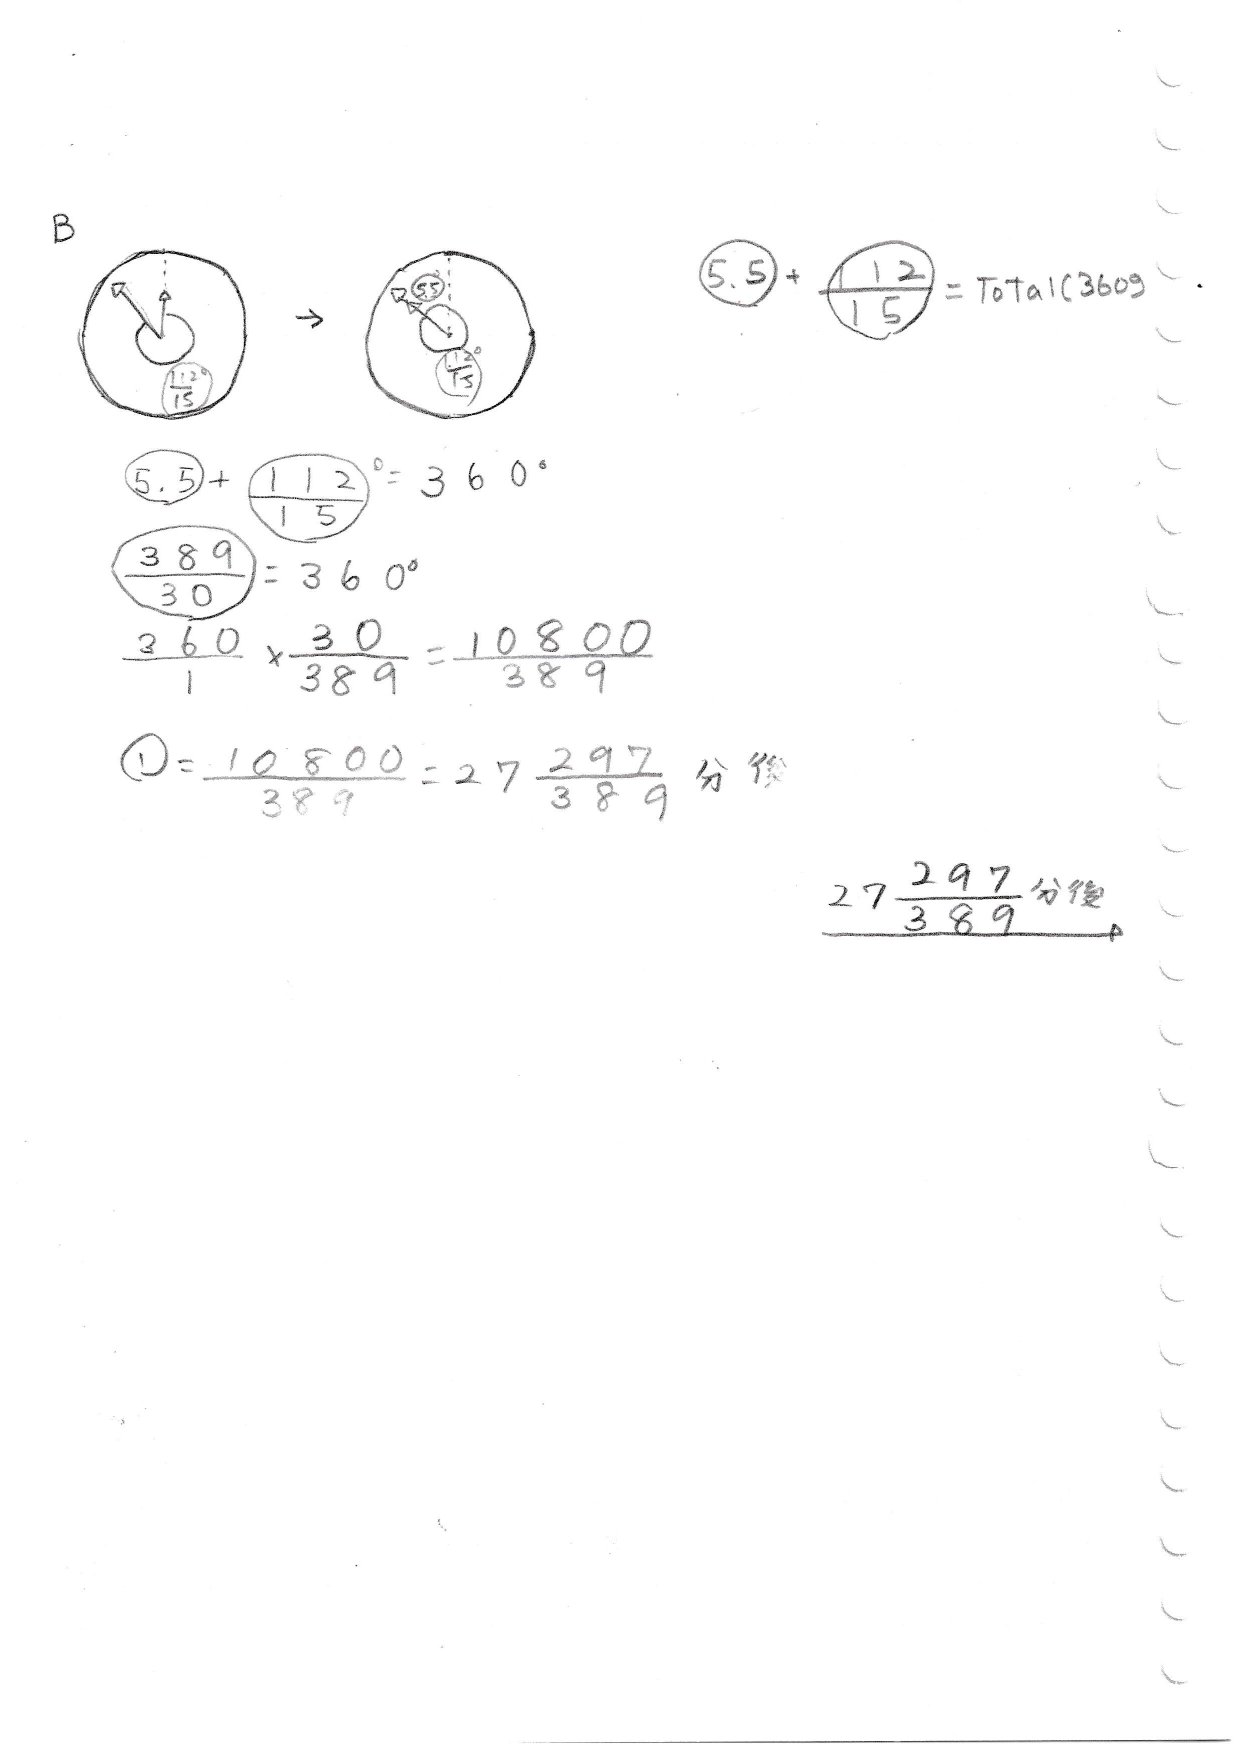 B
5.5 + 112/15 = Total(360°)
112°/15
5.5°
112°/15
5.5 + 112/15° = 360°
389/30 = 360°
360/1 × 30/389 = 10800/389
① = 10800/389 = 27 297/389 分後
27 297/389 分後